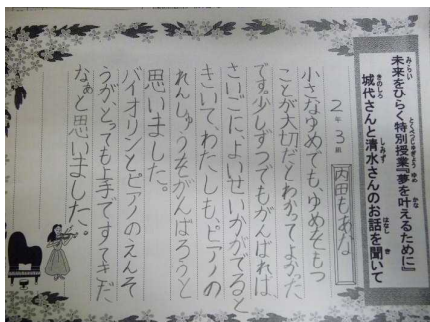 未来をひらく特別授業『夢を叶えるために』
城代さんと清水さんのお話を聞いて
2年3組 内田もあな
小さなゆめでも、ゆめをもつ
ことが大切だとわかってよかった
です。少しずつでもがんばれば、
さいごに、よいせいかがでると
きいて、わたしも、ピアノの
れんしゅうをがんばろうと
思いました。
バイオリンとピアノのえんそ
うが、とっても上手ですてきだ
なぁと思いました。